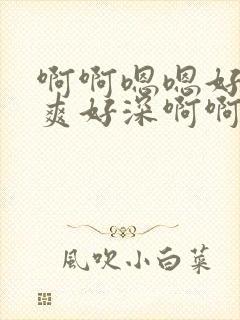 啊啊嗯嗯好
爽好深啊啊
風吹小白菜